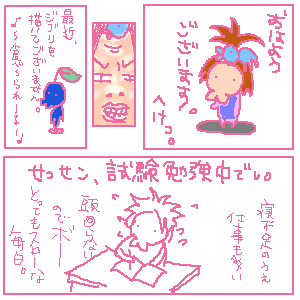 おはよう
ございまする。
へけっ。
最近、
ジブリを
描いてございません。
♪～食～べられ～る～♪
せっセン、試験勉強中でい。
寝不足のうえ
仕事も多い
頭回らない
のでボー
とってもスローな
毎日。